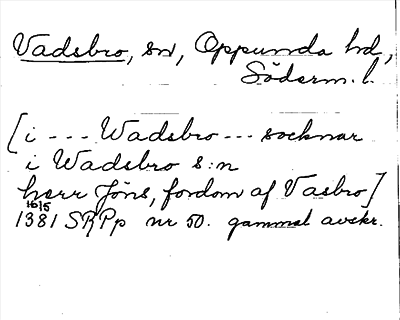 Vadsbro, sn, Oppunda hd,
Söderm. l.
[i --- Wadsbro --- socknar
i Wadsbro s:n
herr Jöns, fordom af Vasbro]
16/5
1381 SRPp nr 50. gammal avskr.